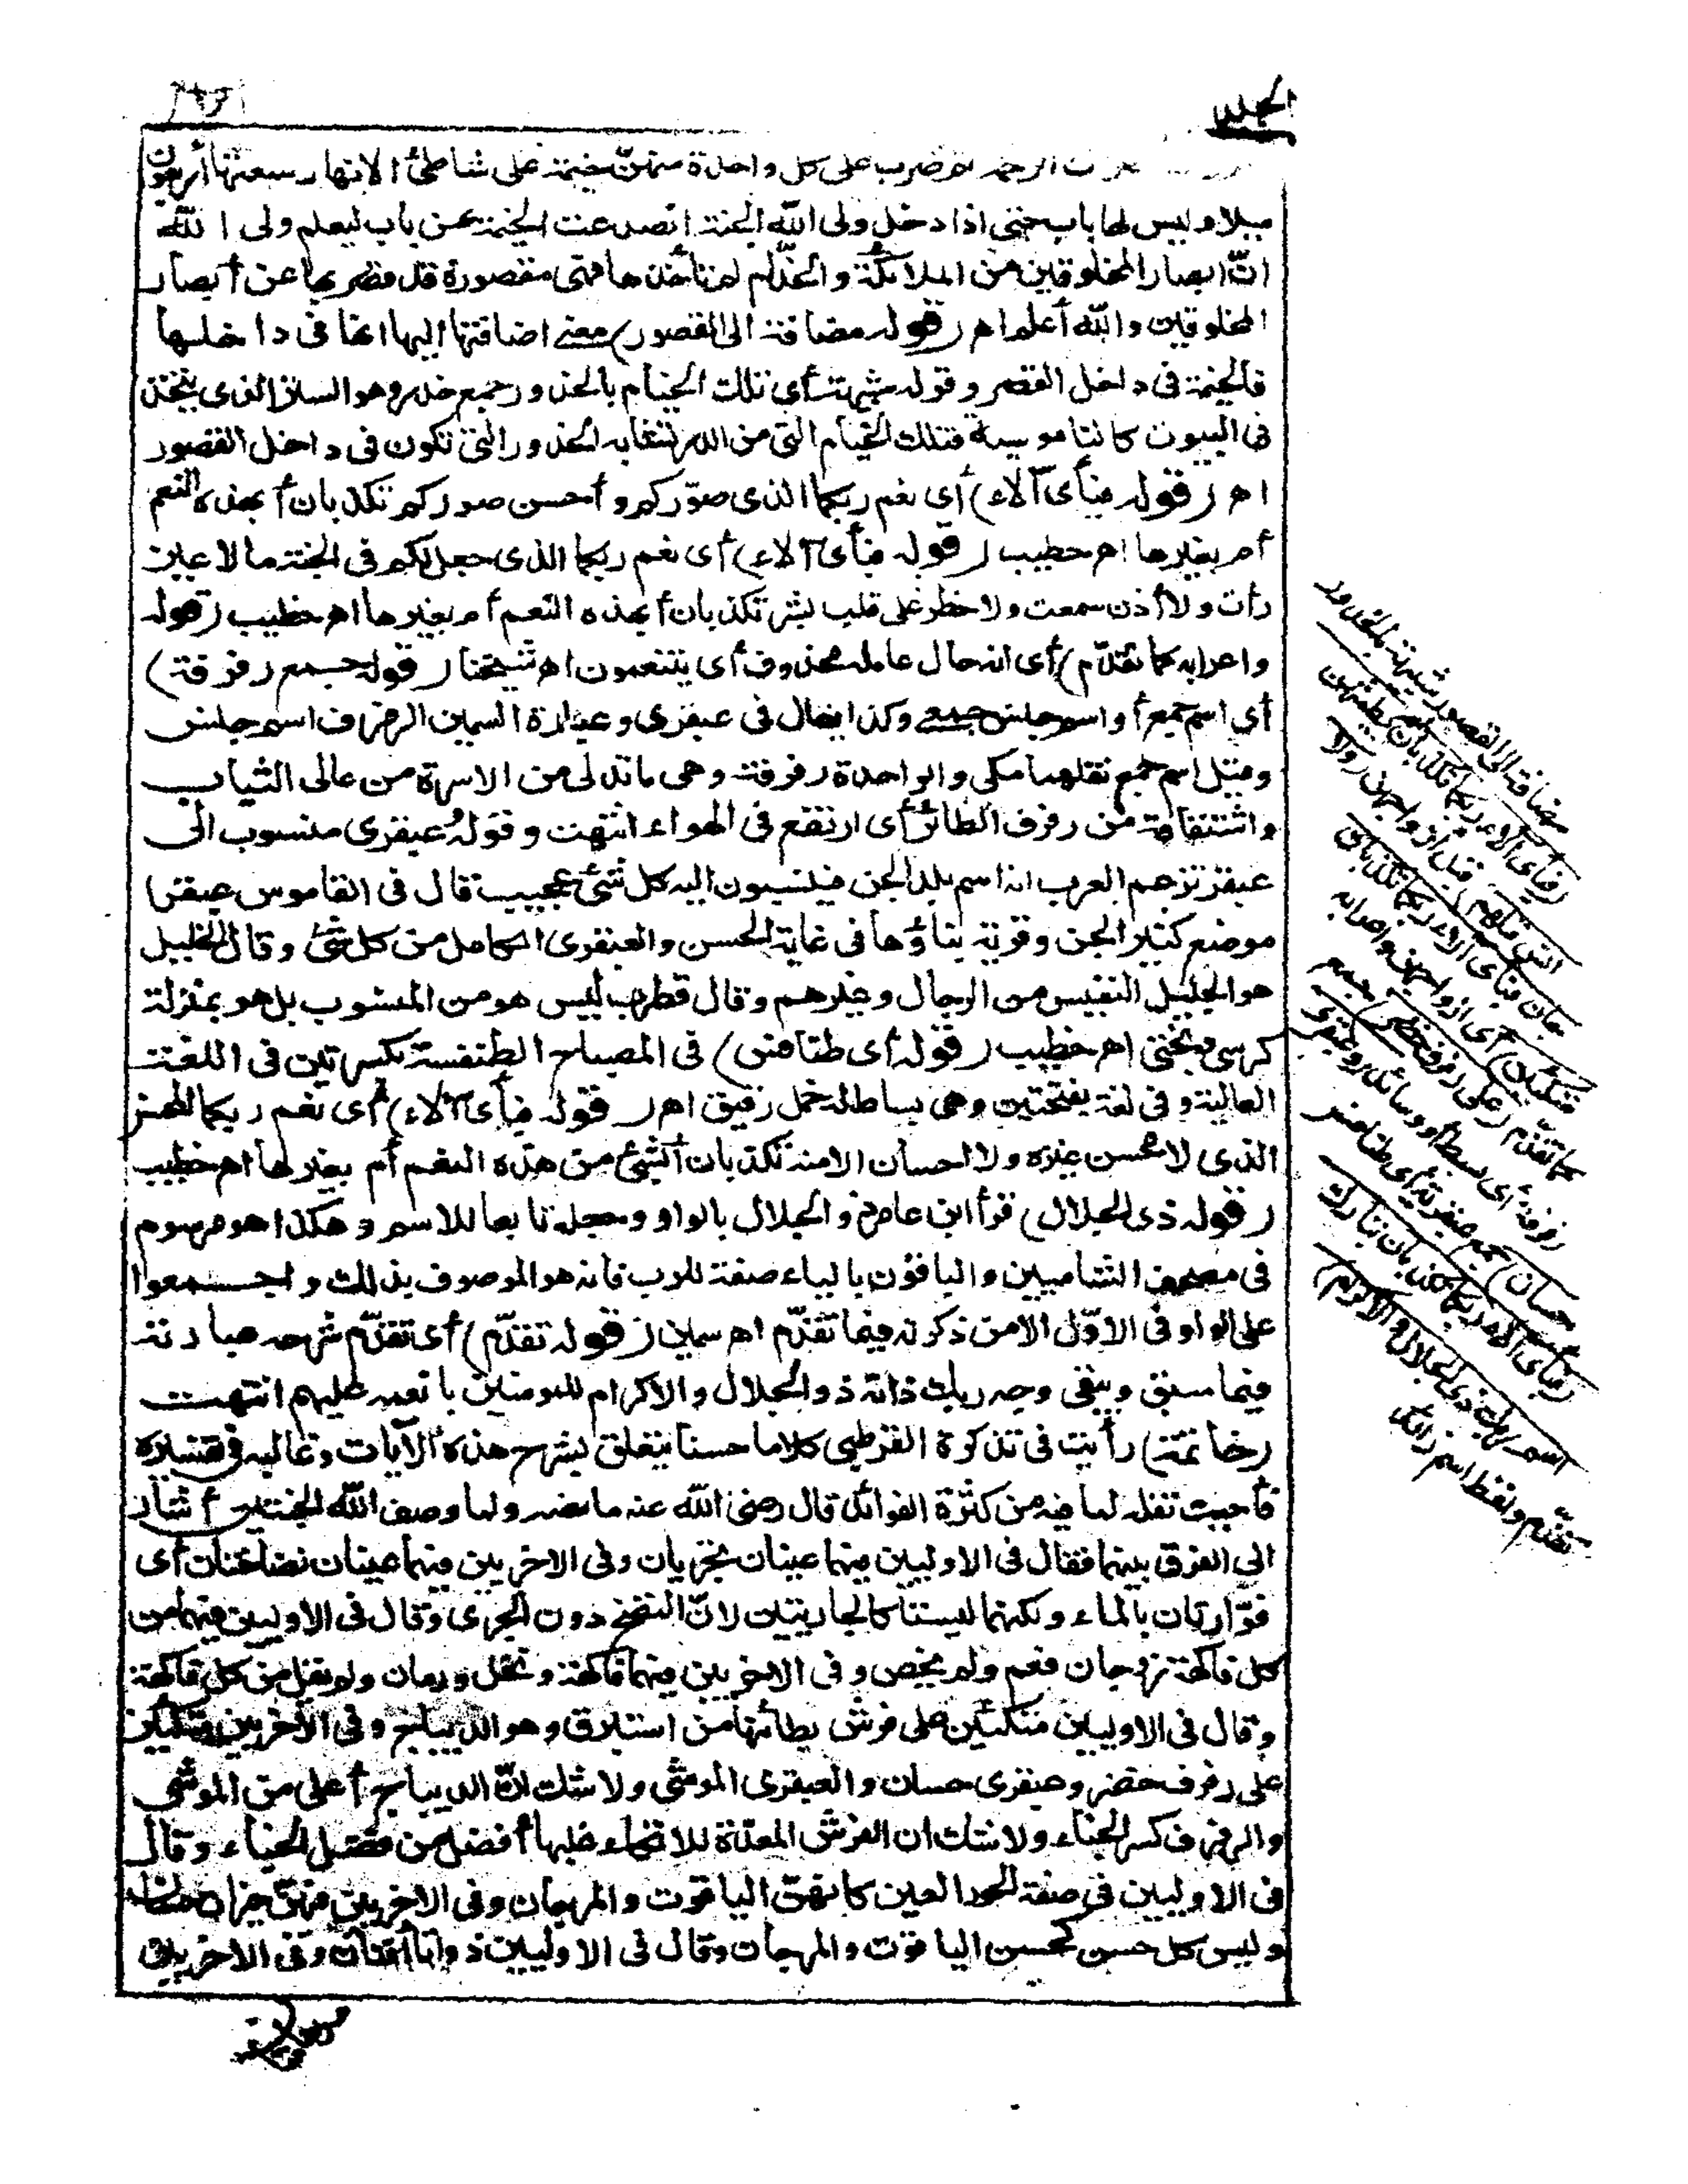 الجمل
من الرحمة ثم ضرب على كل واحدة منهنّ خيمة على شاطئ الانهار سعتها أربعون
ميلا وليس لها باب حتى اذا دخل ولى اللّه الجنة انصدعت الخيمة عن باب ليعلم ولى اللّه
انّ ابصار المخلوقين من الملائكة والخدّام لم تأخذها فهى مقصورة قد قصر بها عن أبصار
المخلوقين واللّه أعلم اهـ (قوله مضافة الى القصور) معنى اضافتها اليها انها فى داخلها
فالخيمة فى داخل القصر وقوله شبيهة أى تلك الخيام بالخدور جمع خدر وهو الستر الذى يتخذ
فى البيوت كالناموسية فتلك الخيام التى من الدر تشابه الخدور التى تكون فى داخل القصور
اهـ (قوله فبأى آلاء) أى نعم ربكما الذى صوّركم وأحسن صوركم تكذبان أبهذه النعم
أم بغيرها اهـ خطيب (قوله فبأى آلاء) أى نعم ربكما الذى جعل لكم فى الجنة ما لا عين
رأت ولا أذن سمعت ولا خطر على قلب بشر تكذبان أبهذه النعم أم بغيرها اهـ خطيب (قوله
واعرابه كما تقدّم) أى انه حال عامله محذوف أى يتنعمون اهـ شيخنا (قوله جمع رفرفة)
أى اسم جمع أو اسم جنس جمعى وكذا يقال فى عبقرى وعبارة السمين الرفرف اسم جنس
وقيل اسم جمع نقلهما مكى والواحدة رفرفة وهى ما تدلى من الاسرة من عالى الثياب
واشتقاقه من رفرف الطائر أى ارتفع فى الهواء انتهت وقوله عبقرى منسوب الى
عبقر تزعم العرب انه اسم بلد الجن فينسبون اليه كل شئ عجيب قال فى القاموس عبقر
موضع كثير الجن وقرية بناؤها فى غاية الحسن والعبقرى الكامل من كل شئ وقال الخليل
هو الجليل النفيس من الرجال وغيرهم وقال قطرب ليس هو من المنسوب بل هو بمنزلة
كرسى وبختى اهـ خطيب (قوله أى طنافس) فى المصباح الطنفسة بكسرتين فى اللغة
العالية وفى لغة بفتحتين وهى بساط له خمل رقيق اهـ (قوله فبأى آلاء) أى نعم ربكما المحسن
الذى لا محسن غيره ولا احسان الا منه تكذبان أبشئ من هذه النعم أم بغيرها اهـ خطيب
(قوله ذى الجلال) قرأ ابن عامر ذو الجلال بالواو وجعله تابعا للاسم وهكذا هو مرسوم
فى مصحف الشاميين والباقون بالياء صفة للرب فانه هو الموصوف بذلك واجمعوا
على الواو فى الاوّل الا من ذكرته فيما تقدّم اهـ سمين (قوله تقدّم) أى تقدّم شرحه عبارته
فيما سبق ويبقى وجه ربك ذاته ذو الجلال والاكرام للمومنين بانعمه عليهم انتهت
(خاتمة) رأيت فى تذكرة القرطبى كلاما حسنا يتعلق بشرح هذه الآيات
فأحببت نقله لما فيه من كثرة الفوائد قال رضى اللّه عنه ما نصه ولما وصف اللّه الجنتين أشار
الى الفرق بينهما فقال فى الاوليين فيهما عينان تجريان وفى الاخريين فيهما عينان نضاختان أى
فوّارتان بالماء ولكنهما ليستا كالجاريتين لانّ النضخ دون الجرى وقال فى الاوليين فيهما من
كل فاكهة زوجان فعم ولم يخص وفى الاخريين فيهما فاكهة ونخل ورمان ولم يقل من كل فاكهة
وقال فى الاوليين متكئين على فرش بطائنها من استبرق وهو الديباج وفى الاخريين متكئين
على رفرف خضر وعبقرى حسان والعبقرى الموشى ولا شك انّ الديباج أعلى من الموشى
والرفرف كسر الخباء ولا شك ان الفرش المعدّة للاتكاء عليها أفضل من فضل الخباء وقال
فى الاوليين فى صفة الحور العين كانهنّ الياقوت والمرجان وفى الاخريين فيهنّ خيرات حسان
وليس كل حسن كحسن الياقوت والمرجان وقال فى الاوليين ذواتا أفنان وفى الاخريين
مضافة الى القصور شبيهة بالخدور
(فبأى آلاء ربكما تكذبان لم يطمثهن
انس قبلهم) قبل أزواجهن (ولا
جان فبأى آلاء ربكما تكذبان
متكئين) أى ازواجهن واعرابه
كما تقدّم (على رفرف خضر) جمع
رفرفة أى بسط أو وسائد (وعبقرى
حسان) جمع عبقرية أى طنافس
(فبأى آلاء ربكما تكذبان تبارك
اسم ربك ذى الجلال والاكرام)
تقدّم ولفظ اسم زائد